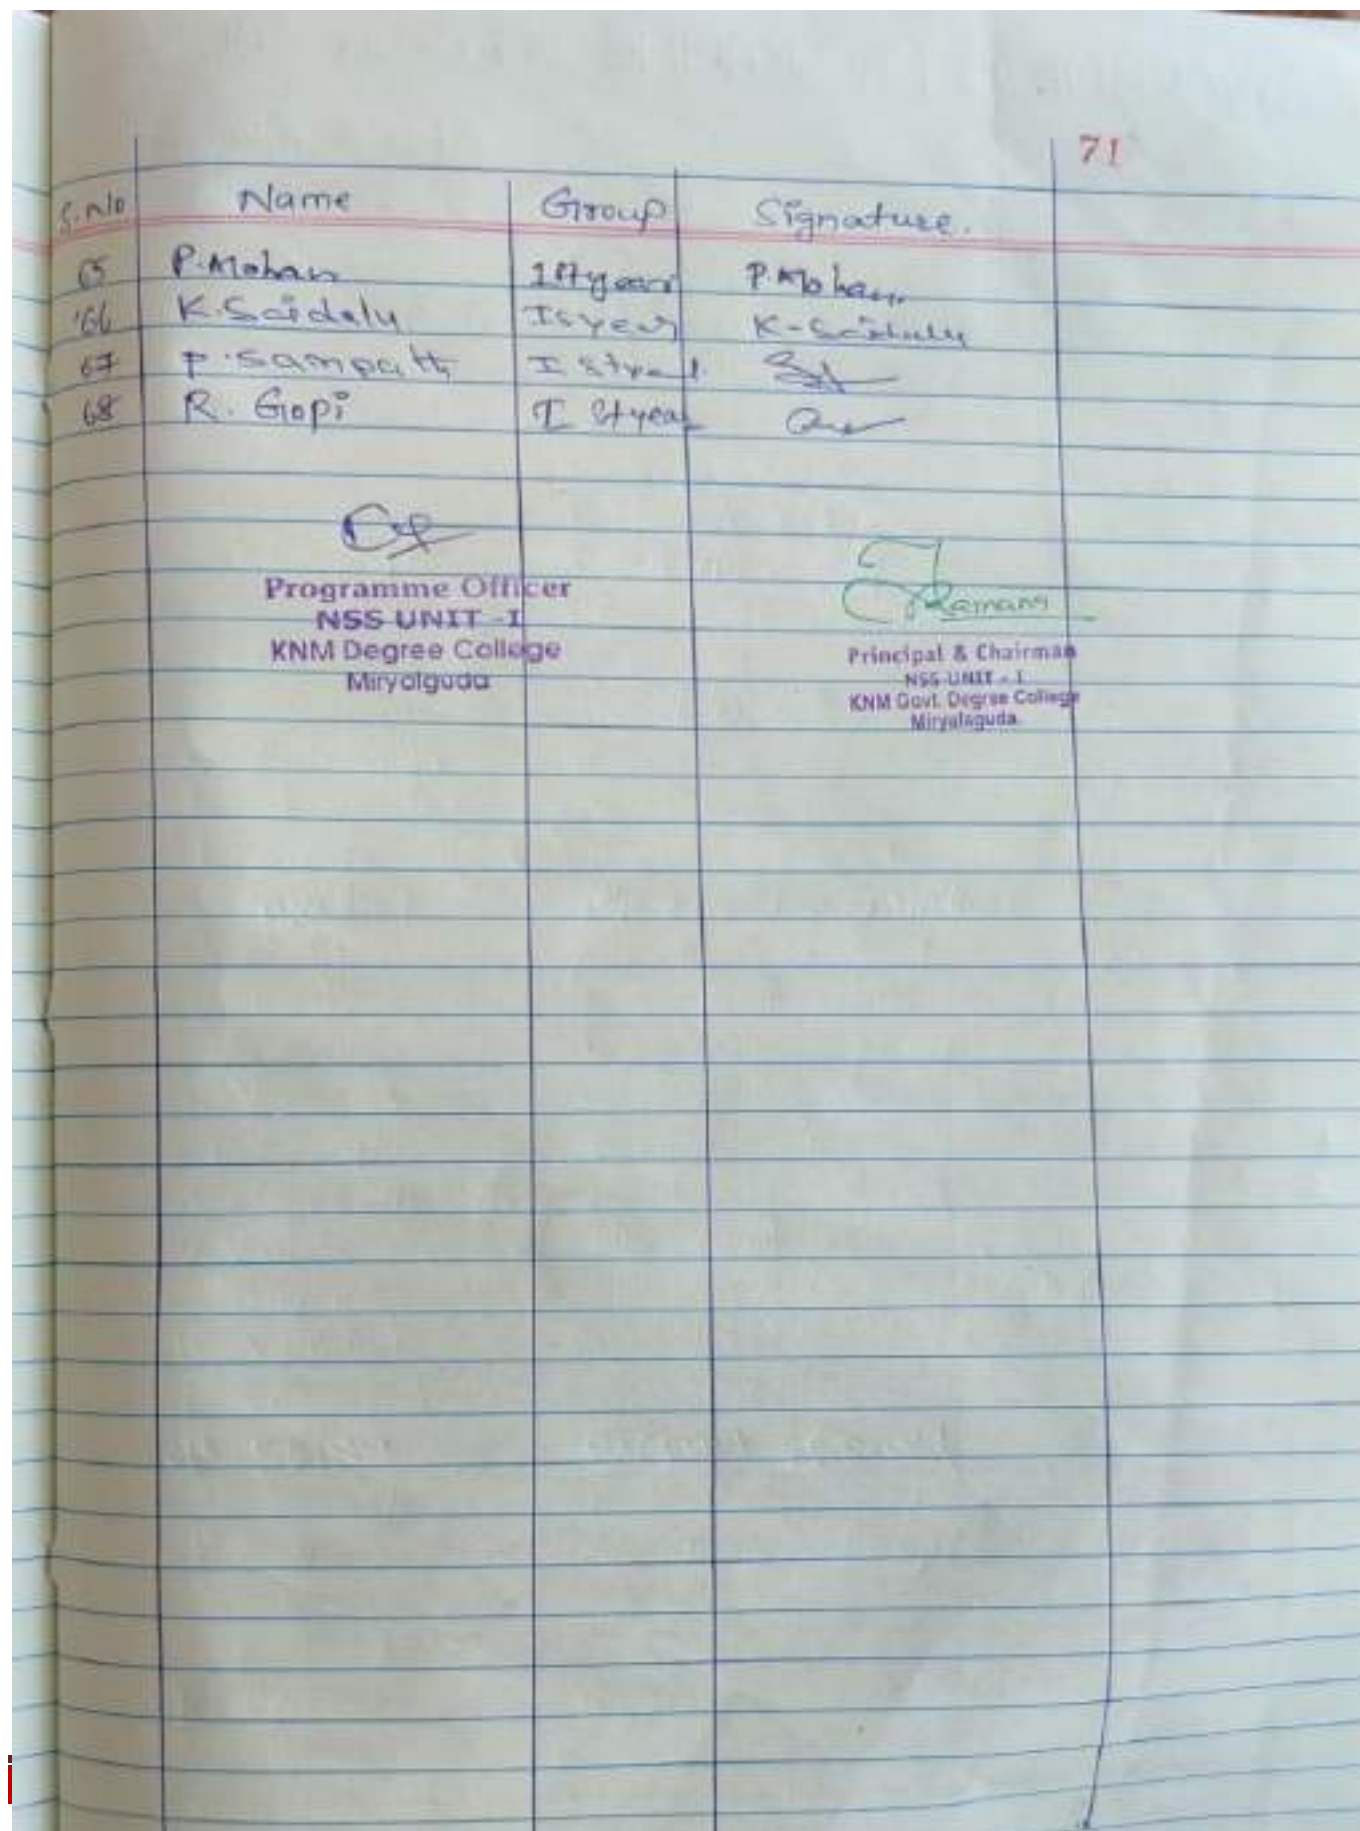 71
S.No Name Group Signature.
65 P.Mohan 1st year P.Mohan
66 K.Saidalu Is year K-Saidulu
67 P.Sampath I st year
68 R. Gopi I st year
Programme Officer
NSS UNIT - I
KNM Degree College
Miryalguda
Ramans
Principal & Chairman
NSS UNIT - I
KNM Govt. Degree College
Miryalaguda.